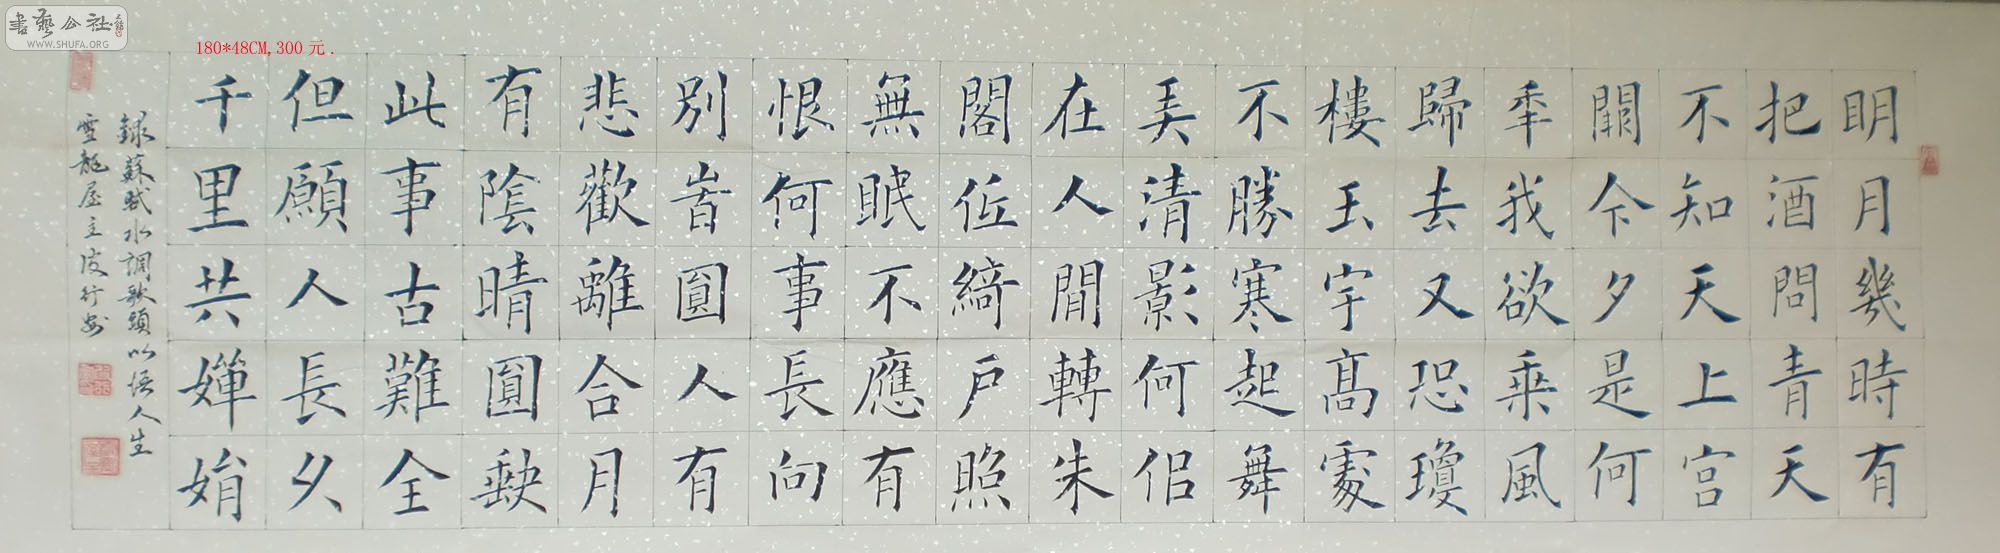 書藝公社
WWW.SHUFA.ORG
180*48CM,300 元 .
明月幾時有
把酒問青天
不知天上宫
闕今夕是何
秊我欲乘風
歸去又恐瓊
樓玉宇髙處
不勝寒起舞
弄清影何佀
在人間轉朱
閣低綺户照
無眠不應有
恨何事長向
别峕圓人有
悲歡離合月
有陰晴圓缺
此事古難全
但願人長久
千里共嬋娟
錄蘇軾水調歌頭以悟人生
雪龍屋主